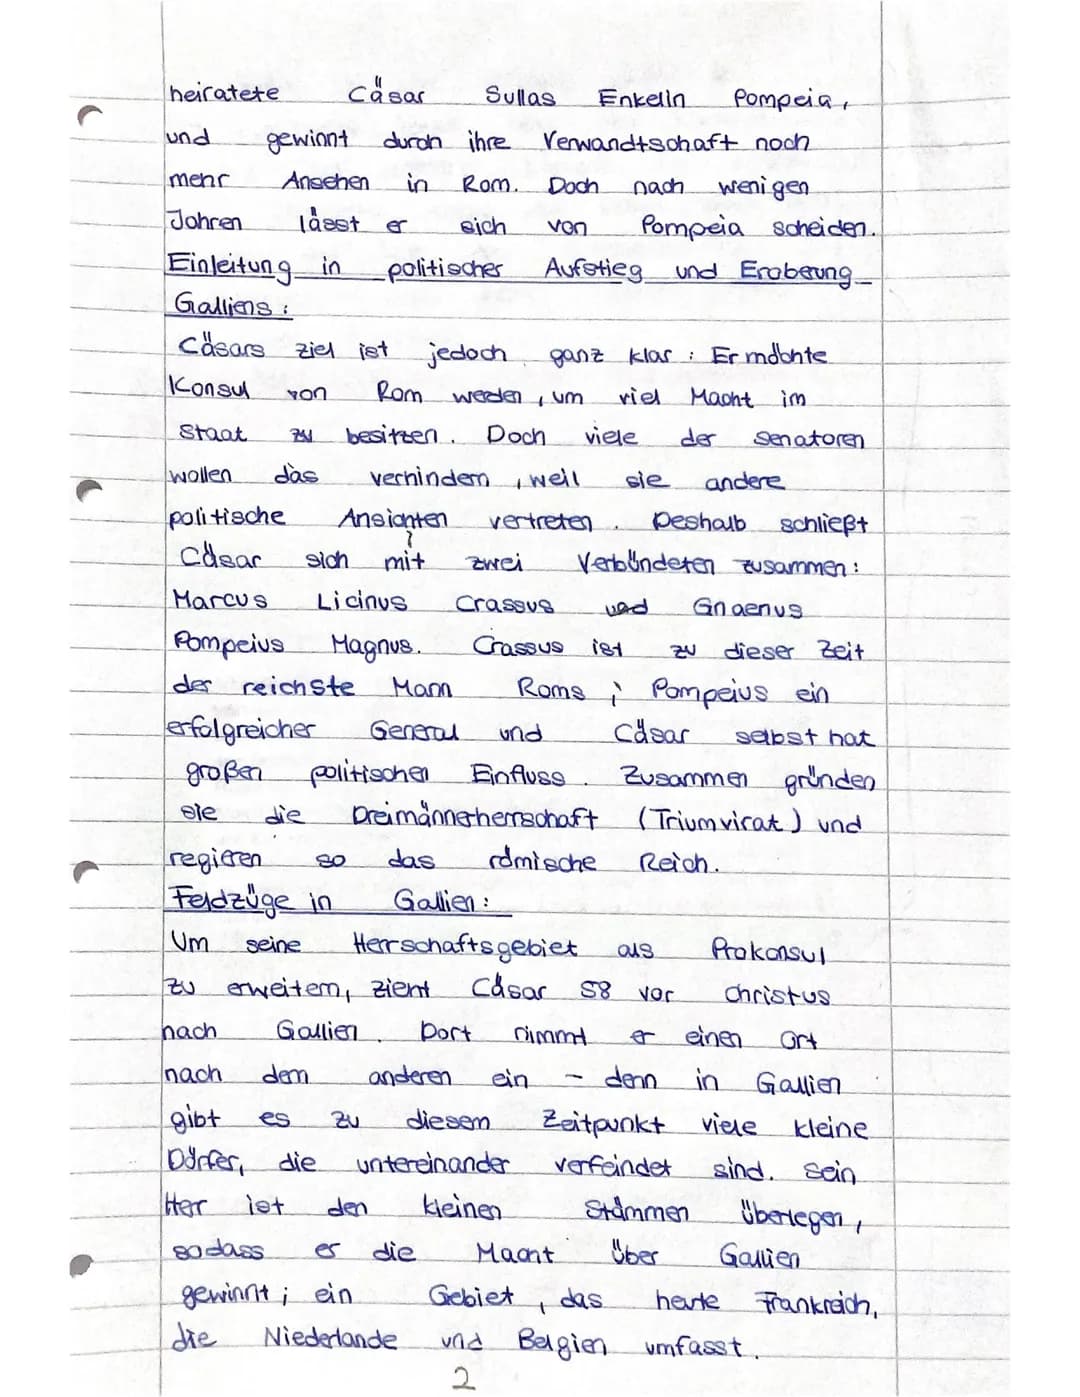 heiratete Cäsar Sullas Enkelin Pompeia,
und gewinnt durch ihre Verwandtschaft noch
mehr Ansehen in Rom. Doch nach wenigen
Jahren lässt er sich von Pompeia scheiden.
Einleitung in politischer Aufstieg und Eroberung
Galliens:
Cäsars ziel ist jedoch ganz klar: Er möchte
Konsul von Rom werden, um viel Macht im
Staat zu besitzen. Doch viele der Senatoren
wollen das verhindern, weil sie andere
politische Ansichten vertreten. Deshalb schließt
Cäsar sich mit zwei Verbündeten zusammen:
Marcus Licinus Crassus und Gnaenus
Pompeius Magnus. Crassus ist zu dieser Zeit
der reichste Mann Roms; Pompeius ein
erfolgreicher General und Cäsar selbst hat
großen politischen Einfluss. Zusammen gründen
sie die Dreimännerherrschaft (Triumvirat) und
regieren so das römische Reich.
Feldzüge in Gallien:
Um seine Herrschaftsgebiet als Prokonsul
zu erweitern, zieht Cäsar 58 vor Christus
nach Gallien. Dort nimmt er einen Ort
nach dem anderen ein - denn in Gallien
gibt es zu diesem Zeitpunkt viele kleine
Dörfer, die untereinander verfeindet sind. Sein
Herr ist den kleinen Stämmen überlegen,
sodass er die Macht über Gallien
gewinnt; ein Gebiet, das heute Frankreich,
die Niederlande und Belgien umfasst.
2